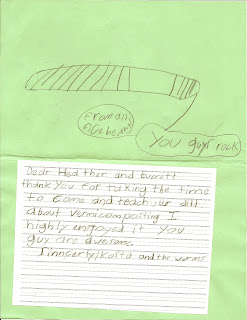 From all
You guys rock
Dear Heather and Everett
thank you for taking the time
to come and teach our
about vermicomposting I
highly engoyed it you
guy are awesome
Sinncerly, Kosta and the worms